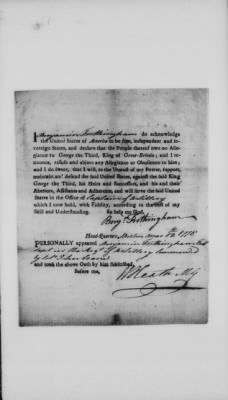 I Benjamin Frothingham do acknowledge
the United States of America to be free, independent and so-
vereign States, and declare that the People thereof owe no Alle-
giance to George the Third, King of Great-Britain; and I re-
nounce, refuse and abjure any Allegiance or Obedience to him;
and I do swear, that I will, to the utmost of my Power, support,
maintain and defend the said United States, against the said King
George the Third, his Heirs and Successors, and his and their
Abettors, Assistants and Adherents, and will serve the said United
States in the Office of Captain of Artillery
which I now hold, with Fidelity, according to the best of my
Skill and Understanding. So help me God.
Benj. Frothingham
Head-Quarters, Boston 1778
PERSONALLY appeared Benjamin Frothingham
Capt in the Regt of Artillery Commanded
by
and took the above Oath by him subscribed,
Before me,
W Heath M G